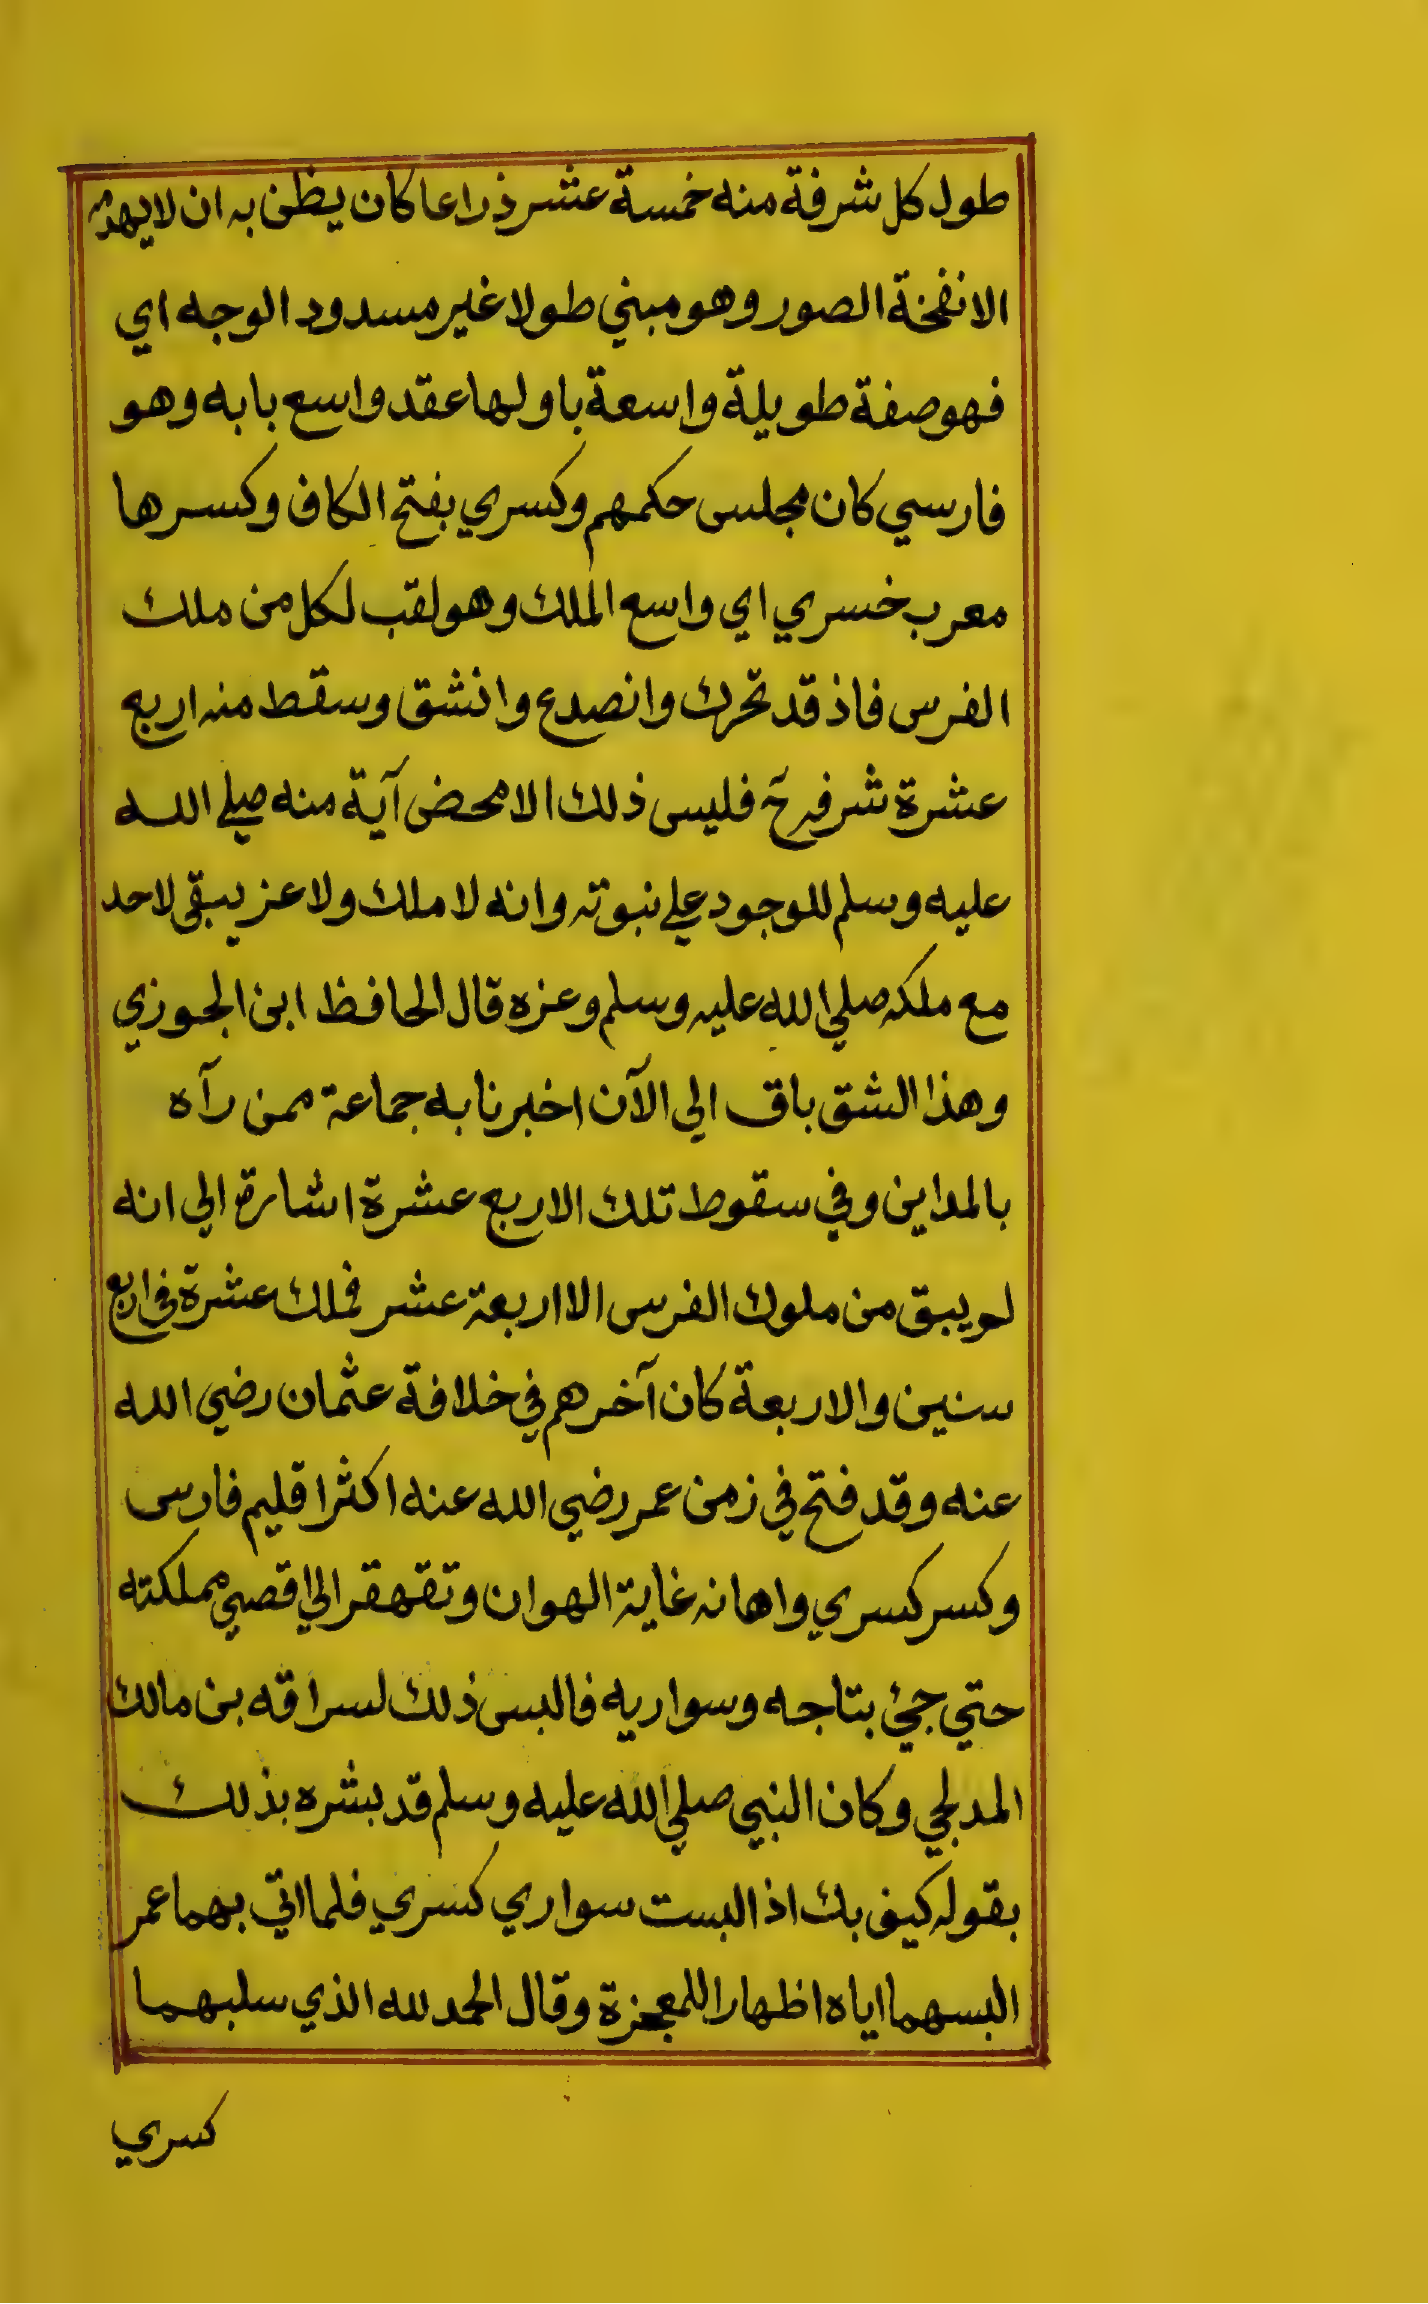 طول كل شرفة منه خمسة عشر ذراعا كان يظن به ان لا يهدمه
الا نفخة الصور وهو مبني طولا غير مسدود الوجه اي
فهو صفة طويلة واسعة باولها عقد واسع بابه وهو
فارسي كان مجلس حكمهم وكسري بفتح الكاف وكسرها
معرب خسري اي واسع الملك وهو لقب لكل من ملك
الفرس فاذ قد تحرك وانصدع وانشق وسقط منه اربع
عشرة شرفة فليس ذلك الا محض آية منه صلى الله
عليه وسلم للوجود علي نبوته وانه لا ملك ولا عز يبقى لاحد
مع ملكه صلي الله عليه وسلم وعزه قال الحافظ ابن الجوزي
وهذا الشق باق الي الآن اخبرنا به جماعة ممن رآه
بالمداين وفي سقوط تلك الاربع عشرة اشارة الي انه
لم يبق من ملوك الفرس الا اربعة عشر فملك عشرة في اربع
سنين والاربعة كان آخرهم في خلافة عثمان رضي الله
عنه وقد فتح في زمن عمر رضي الله عنه اكثر اقليم فارس
وكسر كسري واهانه غاية الهوان وتقهقر الي اقصي مملكته
حتي جئ بتاجه وسواريه فالبس ذلك لسراقه بن مالك
المدلجي وكان النبي صلي الله عليه وسلم قد بشره بذلك
بقوله كيف بك اذا لبست سواري كسري فلما اتي بهما عمر
البسهما اياه اظهارا للمعجزة وقال الحمد لله الذي سلبهما
كسري